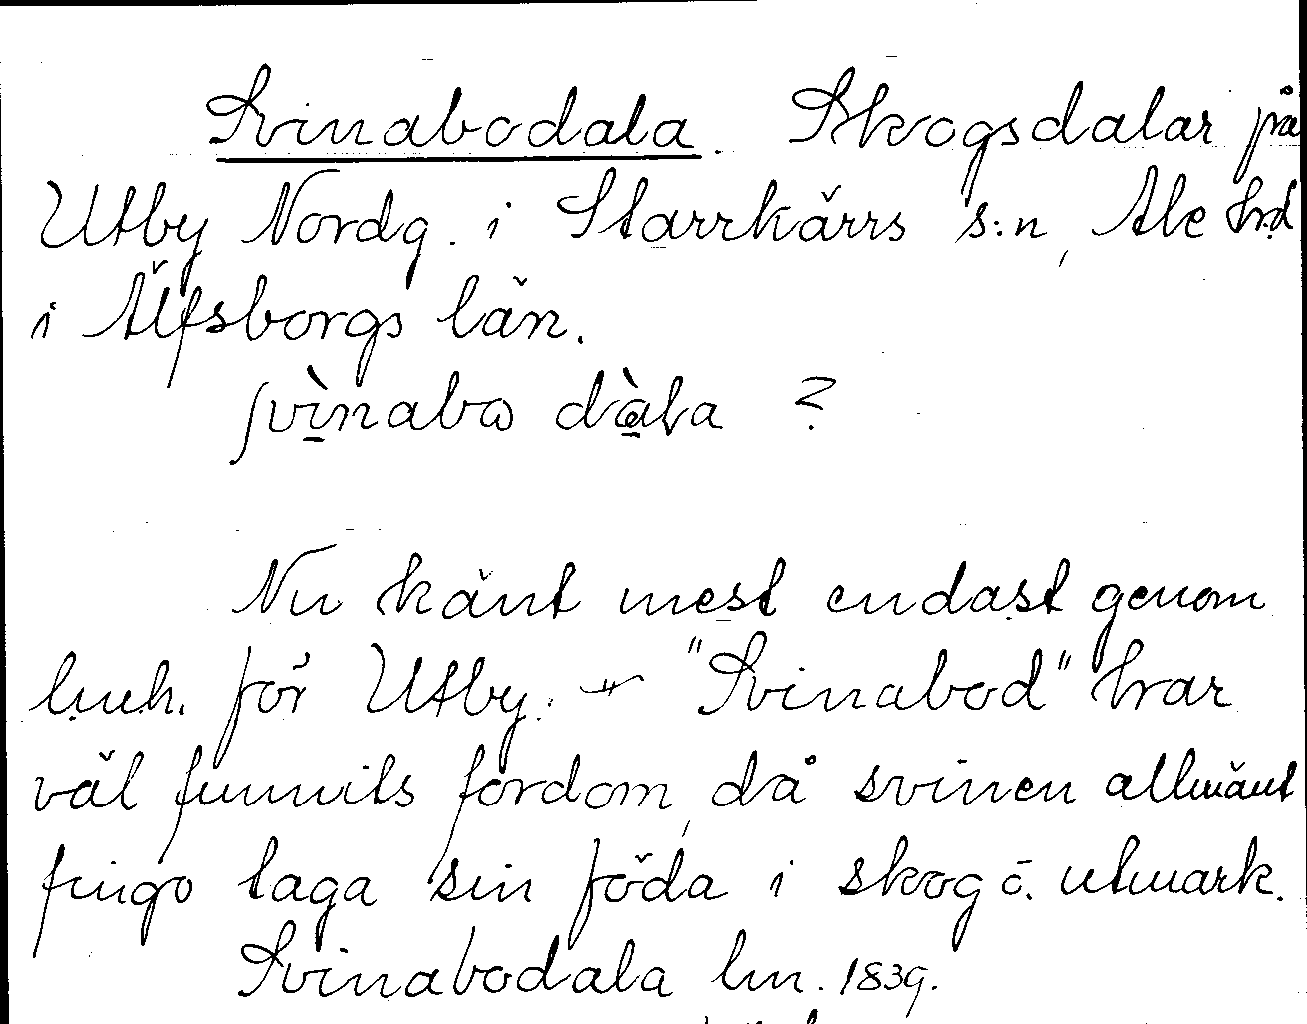 Svinabodala. Skogsdalar på
Utby Nordg. i Starrkärrs s:n, Ale hrd
i Älfsborgs län.
svìnabω dàla ?
Nu känt mest endast genom
lmh. för Utby. — "Svinabod" har
väl funnits fordom, då svinen allmänt
fingo taga sin föda i skog o. utmark.
Svinabodala lm. 1839.